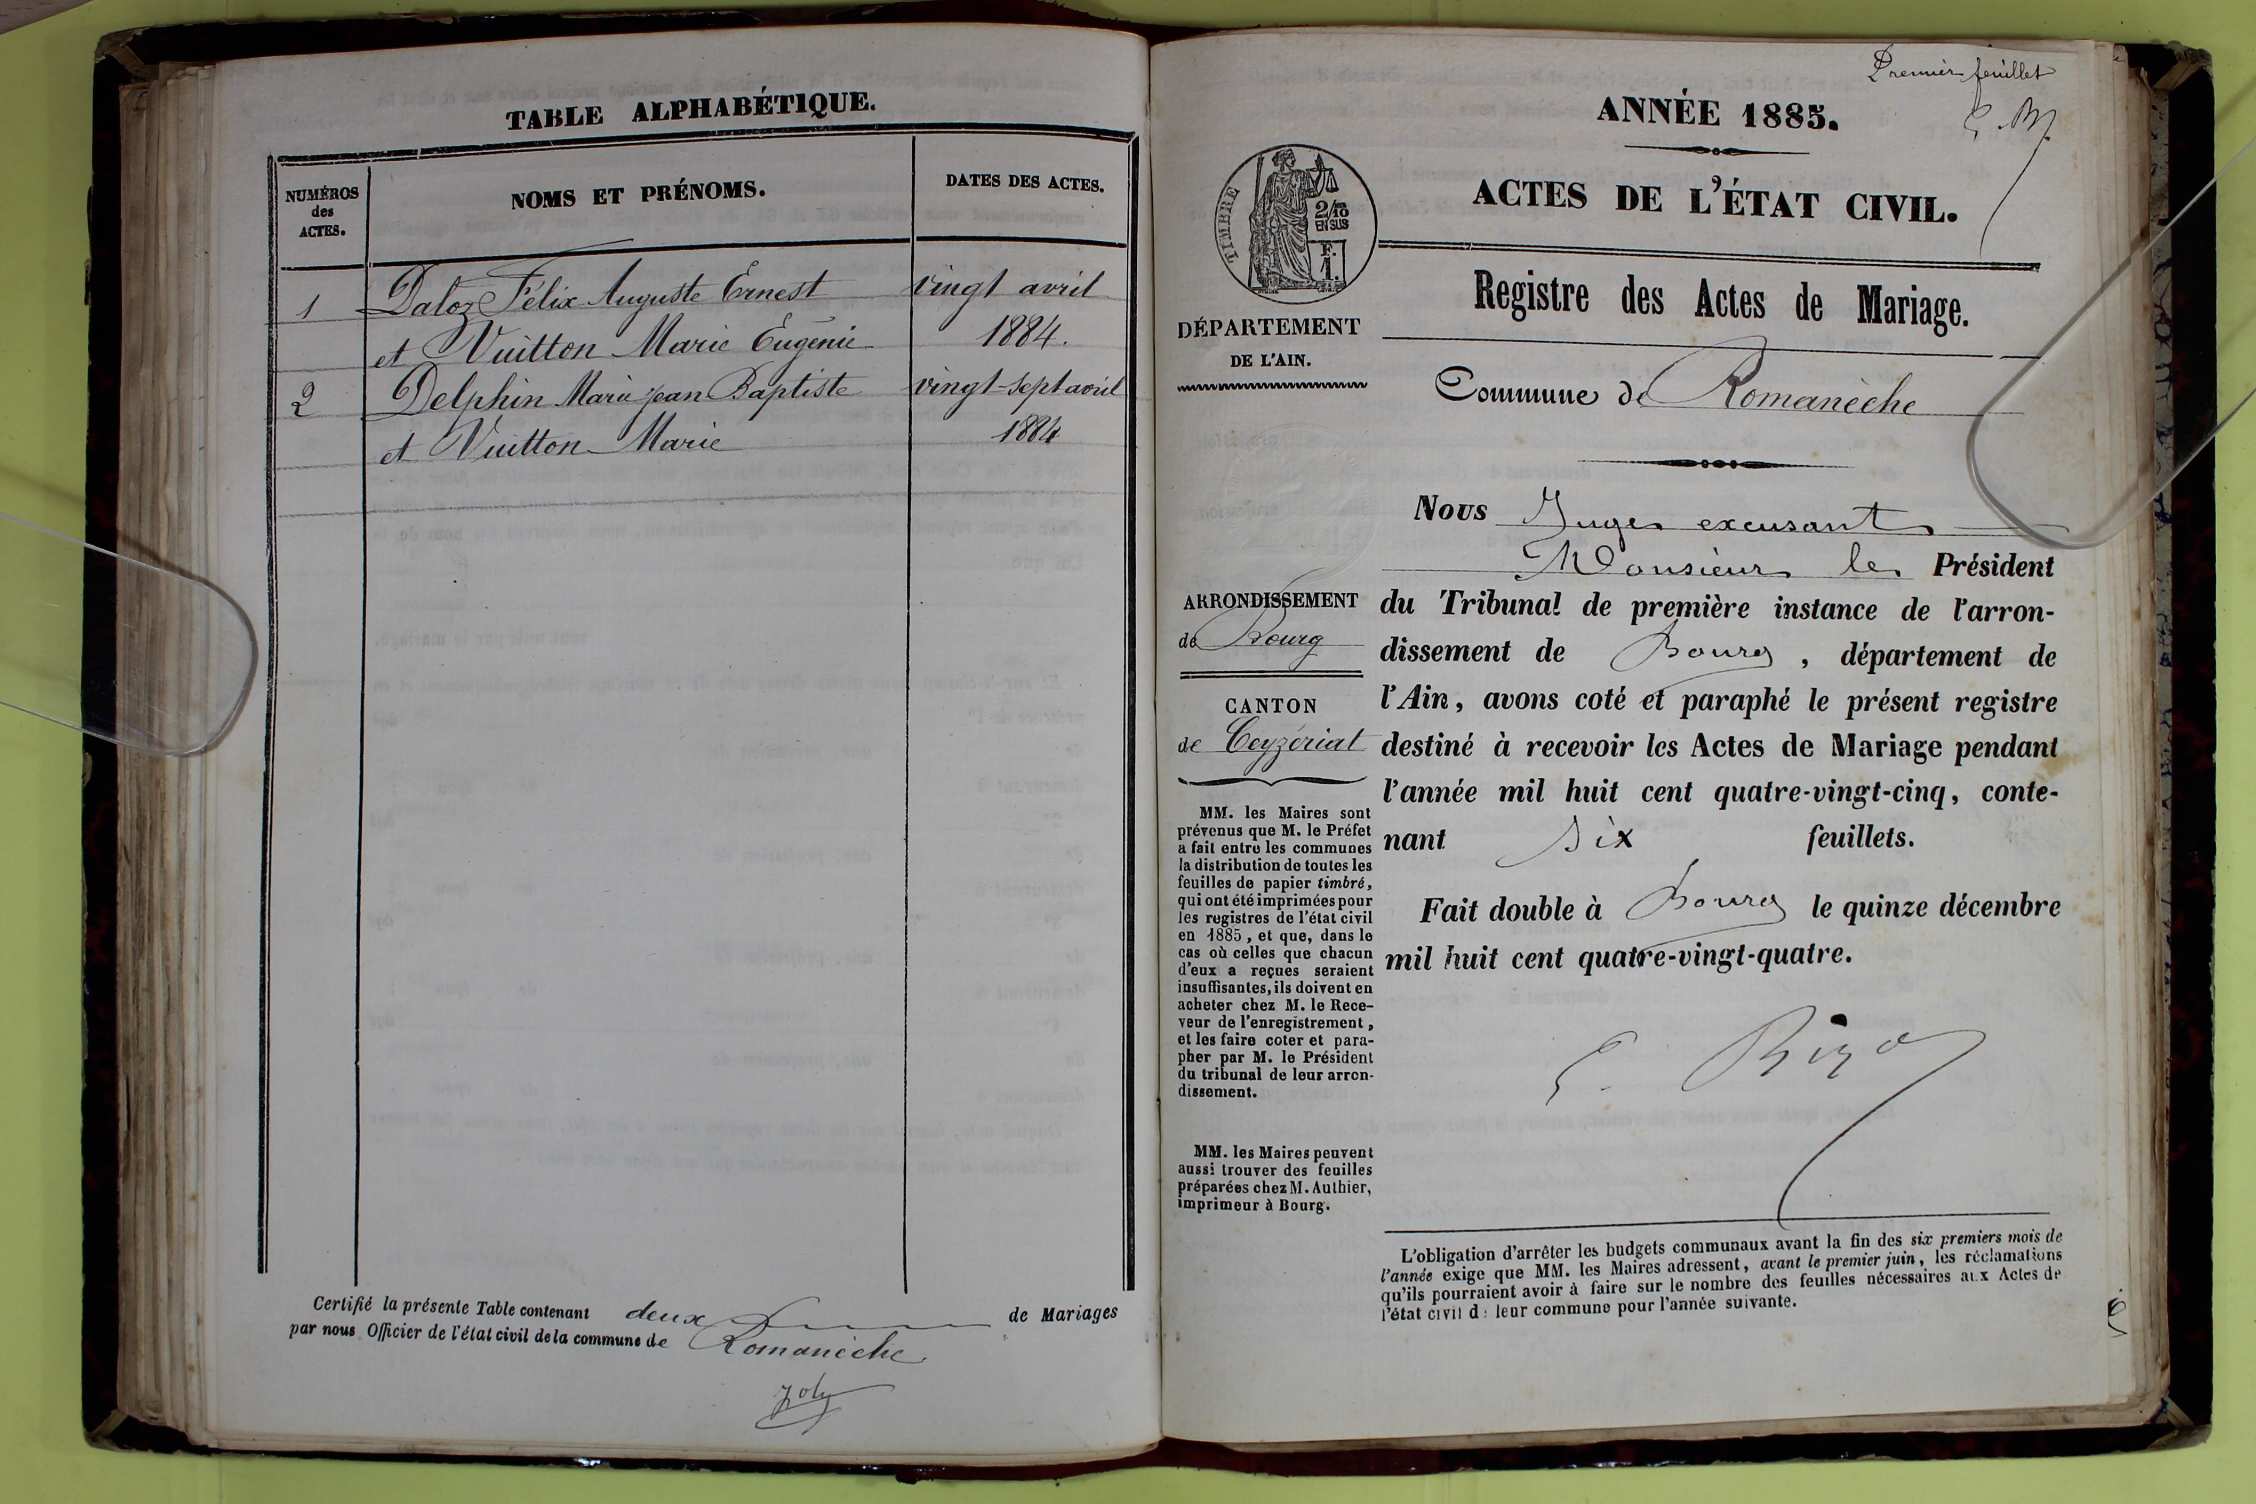 TABLE ALPHABÉTIQUE.
NUMÉROS des ACTES.
NOMS ET PRÉNOMS.
DATES DES ACTES.
1 Daloz Félix Auguste Ernest vingt avril
et Vuitton Marie Eugénie 1884.
2 Delphin Marie Jean Baptiste vingt-sept avril
et Vuitton Marie 1884
Certifié la présente Table contenant deux de Mariages
par nous Officier de l'état civil de la commune de Romanèche
Joly
Premier feuillet
ANNÉE 1885.
ACTES DE L'ÉTAT CIVIL.
TIMBRE
2/10
EN SUS
F.
1.
Registre des Actes de Mariage.
DÉPARTEMENT
DE L'AIN.
Commune de Romanèche
ARRONDISSEMENT
de Bourg
CANTON
de Ceyzériat
MM. les Maires sont
prévenus que M. le Préfet
a fait entre les communes
la distribution de toutes les
feuilles de papier timbré,
qui ont été imprimées pour
les registres de l'état civil
en 1885, et que, dans le
cas où celles que chacun
d'eux a reçues seraient
insuffisantes, ils doivent en
acheter chez M. le Rece-
veur de l'enregistrement,
et les faire coter et para-
pher par M. le Président
du tribunal de leur arron-
dissement.
MM. les Maires peuvent
aussi trouver des feuilles
préparées chez M. Authier,
imprimeur à Bourg.
Nous Juge excusant
Monsieur le Président
du Tribunal de première instance de l'arron-
dissement de Bourg, département de
l'Ain, avons coté et paraphé le présent registre
destiné à recevoir les Actes de Mariage pendant
l'année mil huit cent quatre-vingt-cinq, conte-
nant six feuillets.
Fait double à Bourg le quinze décembre
mil huit cent quatre-vingt-quatre.
L'obligation d'arrêter les budgets communaux avant la fin des six premiers mois de
l'année exige que MM. les Maires adressent, avant le premier juin, les réclamations
qu'ils pourraient avoir à faire sur le nombre des feuilles nécessaires aux Actes de
l'état civil d: leur commune pour l'année suivante.